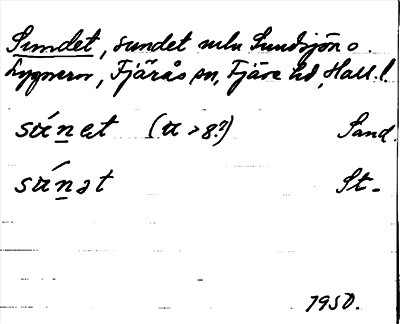 Sundet, sundet mln Sundsjön o.
Lygnern, Fjärås sn, Fjäre hd, Hall.l.
sú̱net (u > 8?) Sand.
súṉət St.
1950.